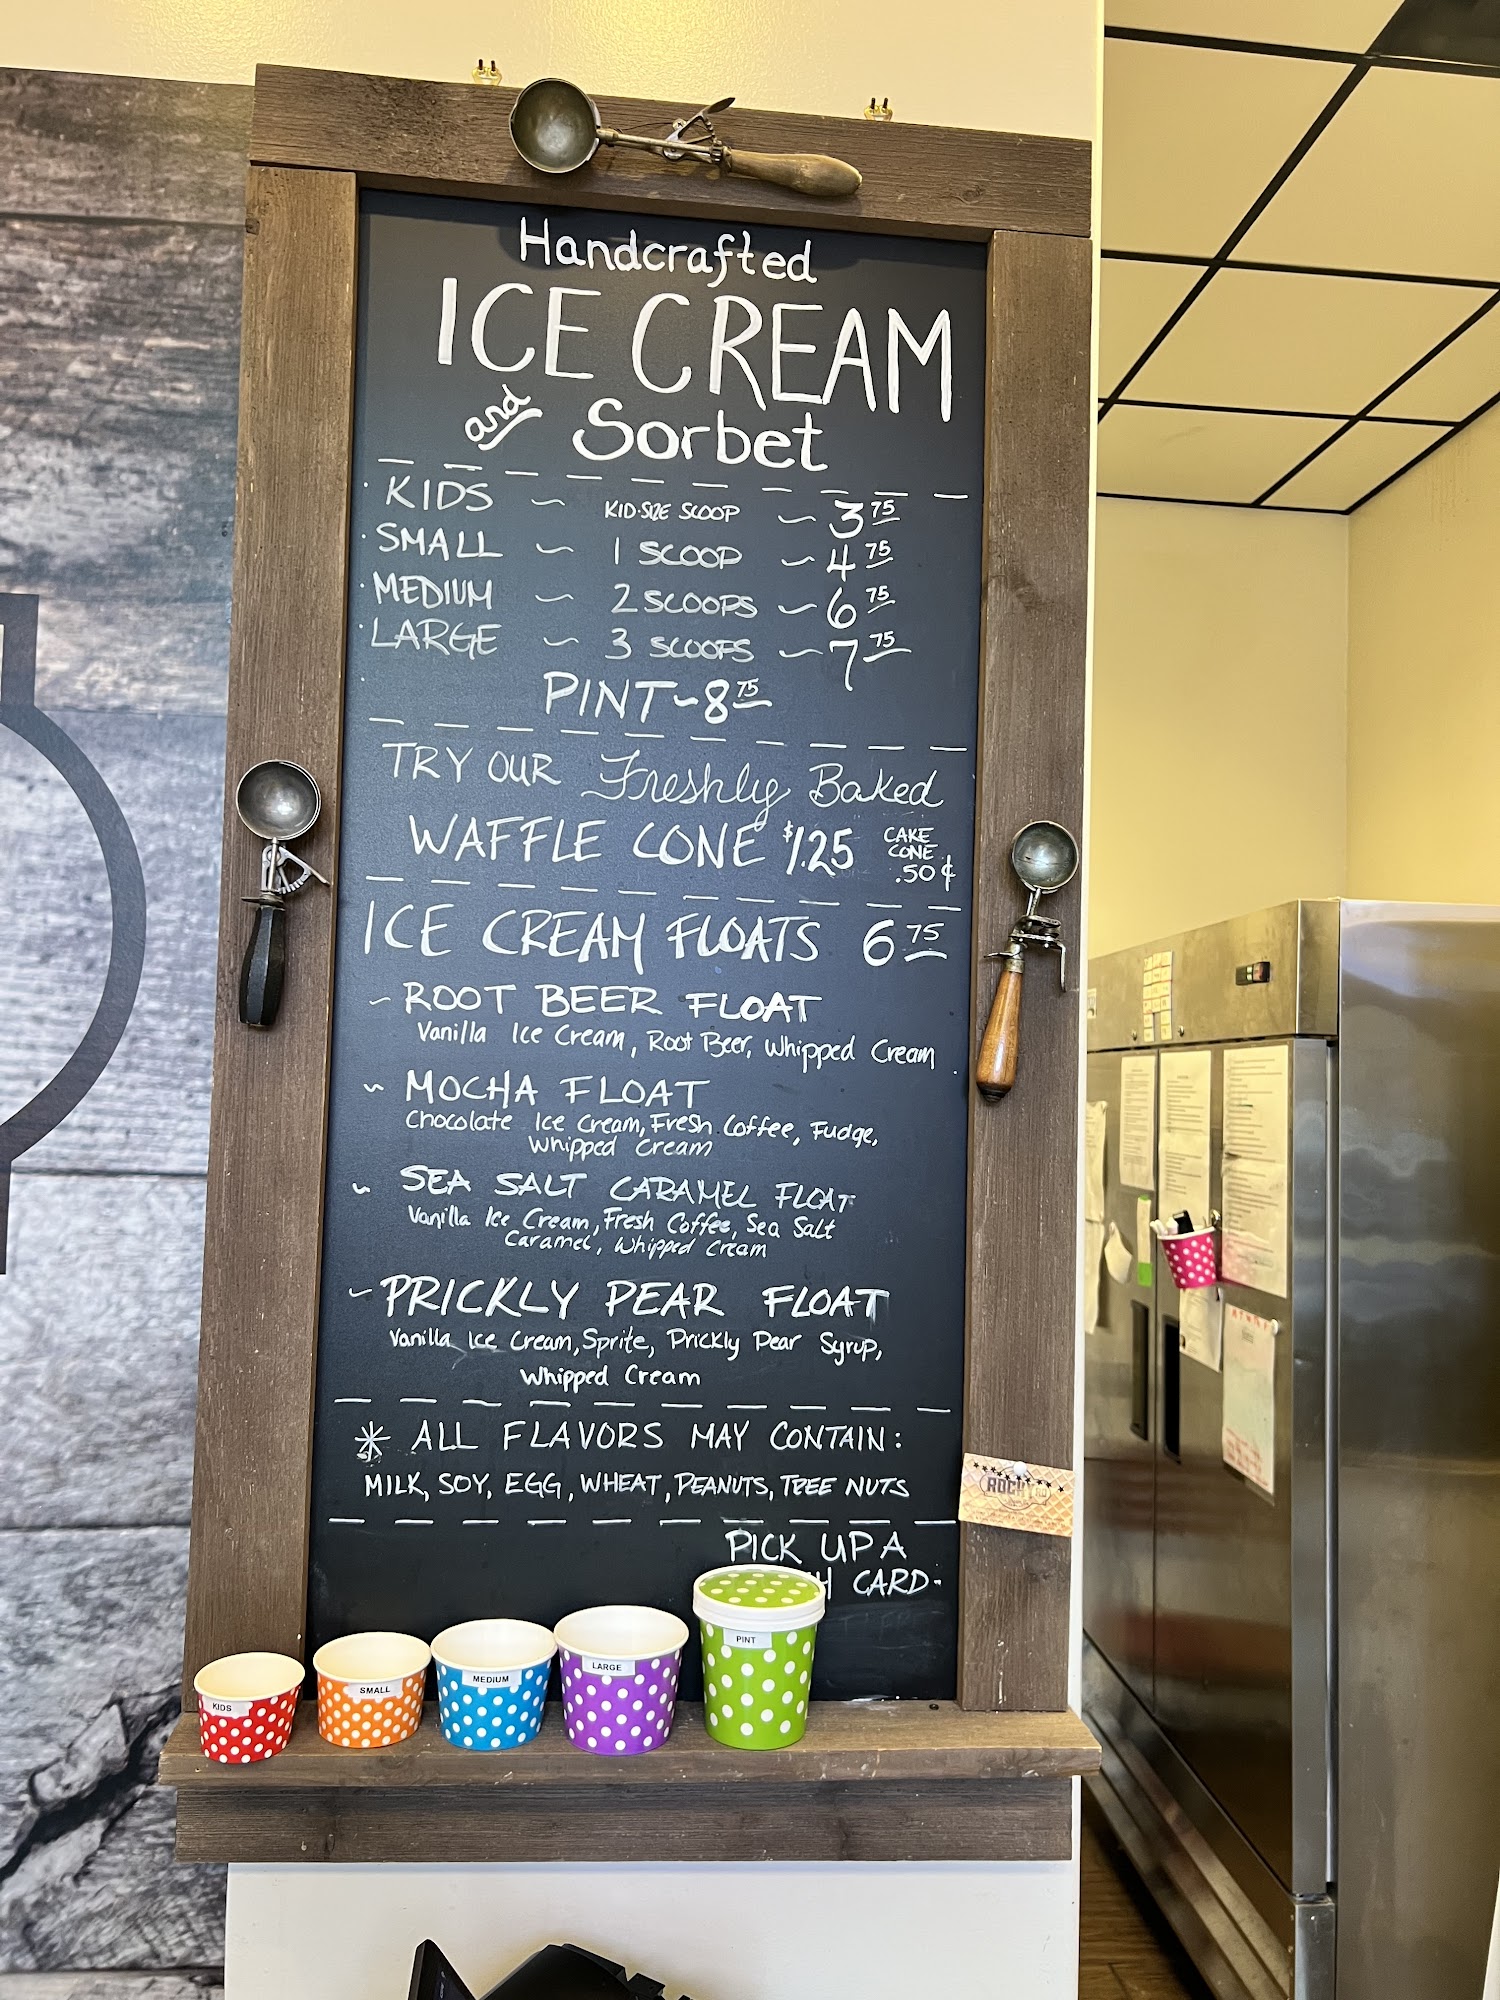 Handcrafted
ICE CREAM
and Sorbet
KIDS ~ KID-SIZE SCOOP ~ 3 75
SMALL ~ 1 SCOOP ~ 4 75
MEDIUM ~ 2 SCOOPS ~ 6 75
LARGE ~ 3 SCOOPS ~ 7 75
PINT ~ 8 75
TRY OUR Freshly Baked
WAFFLE CONE $1.25 CAKE CONE .50¢
ICE CREAM FLOATS 6 75
~ ROOT BEER FLOAT
Vanilla Ice Cream, Root Beer, Whipped Cream
~ MOCHA FLOAT
Chocolate Ice Cream, Fresh Coffee, Fudge,
Whipped Cream
~ SEA SALT CARAMEL FLOAT
Vanilla Ice Cream, Fresh Coffee, Sea Salt
Caramel, Whipped Cream
~ PRICKLY PEAR FLOAT
Vanilla Ice Cream, Sprite, Prickly Pear Syrup,
Whipped Cream
* ALL FLAVORS MAY CONTAIN:
MILK, SOY, EGG, WHEAT, PEANUTS, TREE NUTS
PICK UP A
CARD
KIDS
SMALL
MEDIUM
LARGE
PINT